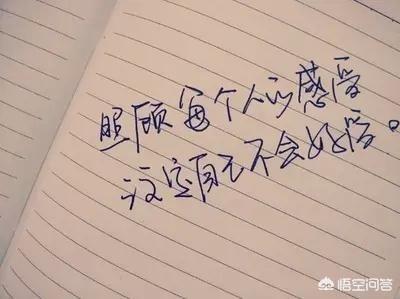 照顾每个人的感受
注定自己不会好受。
悟空问答